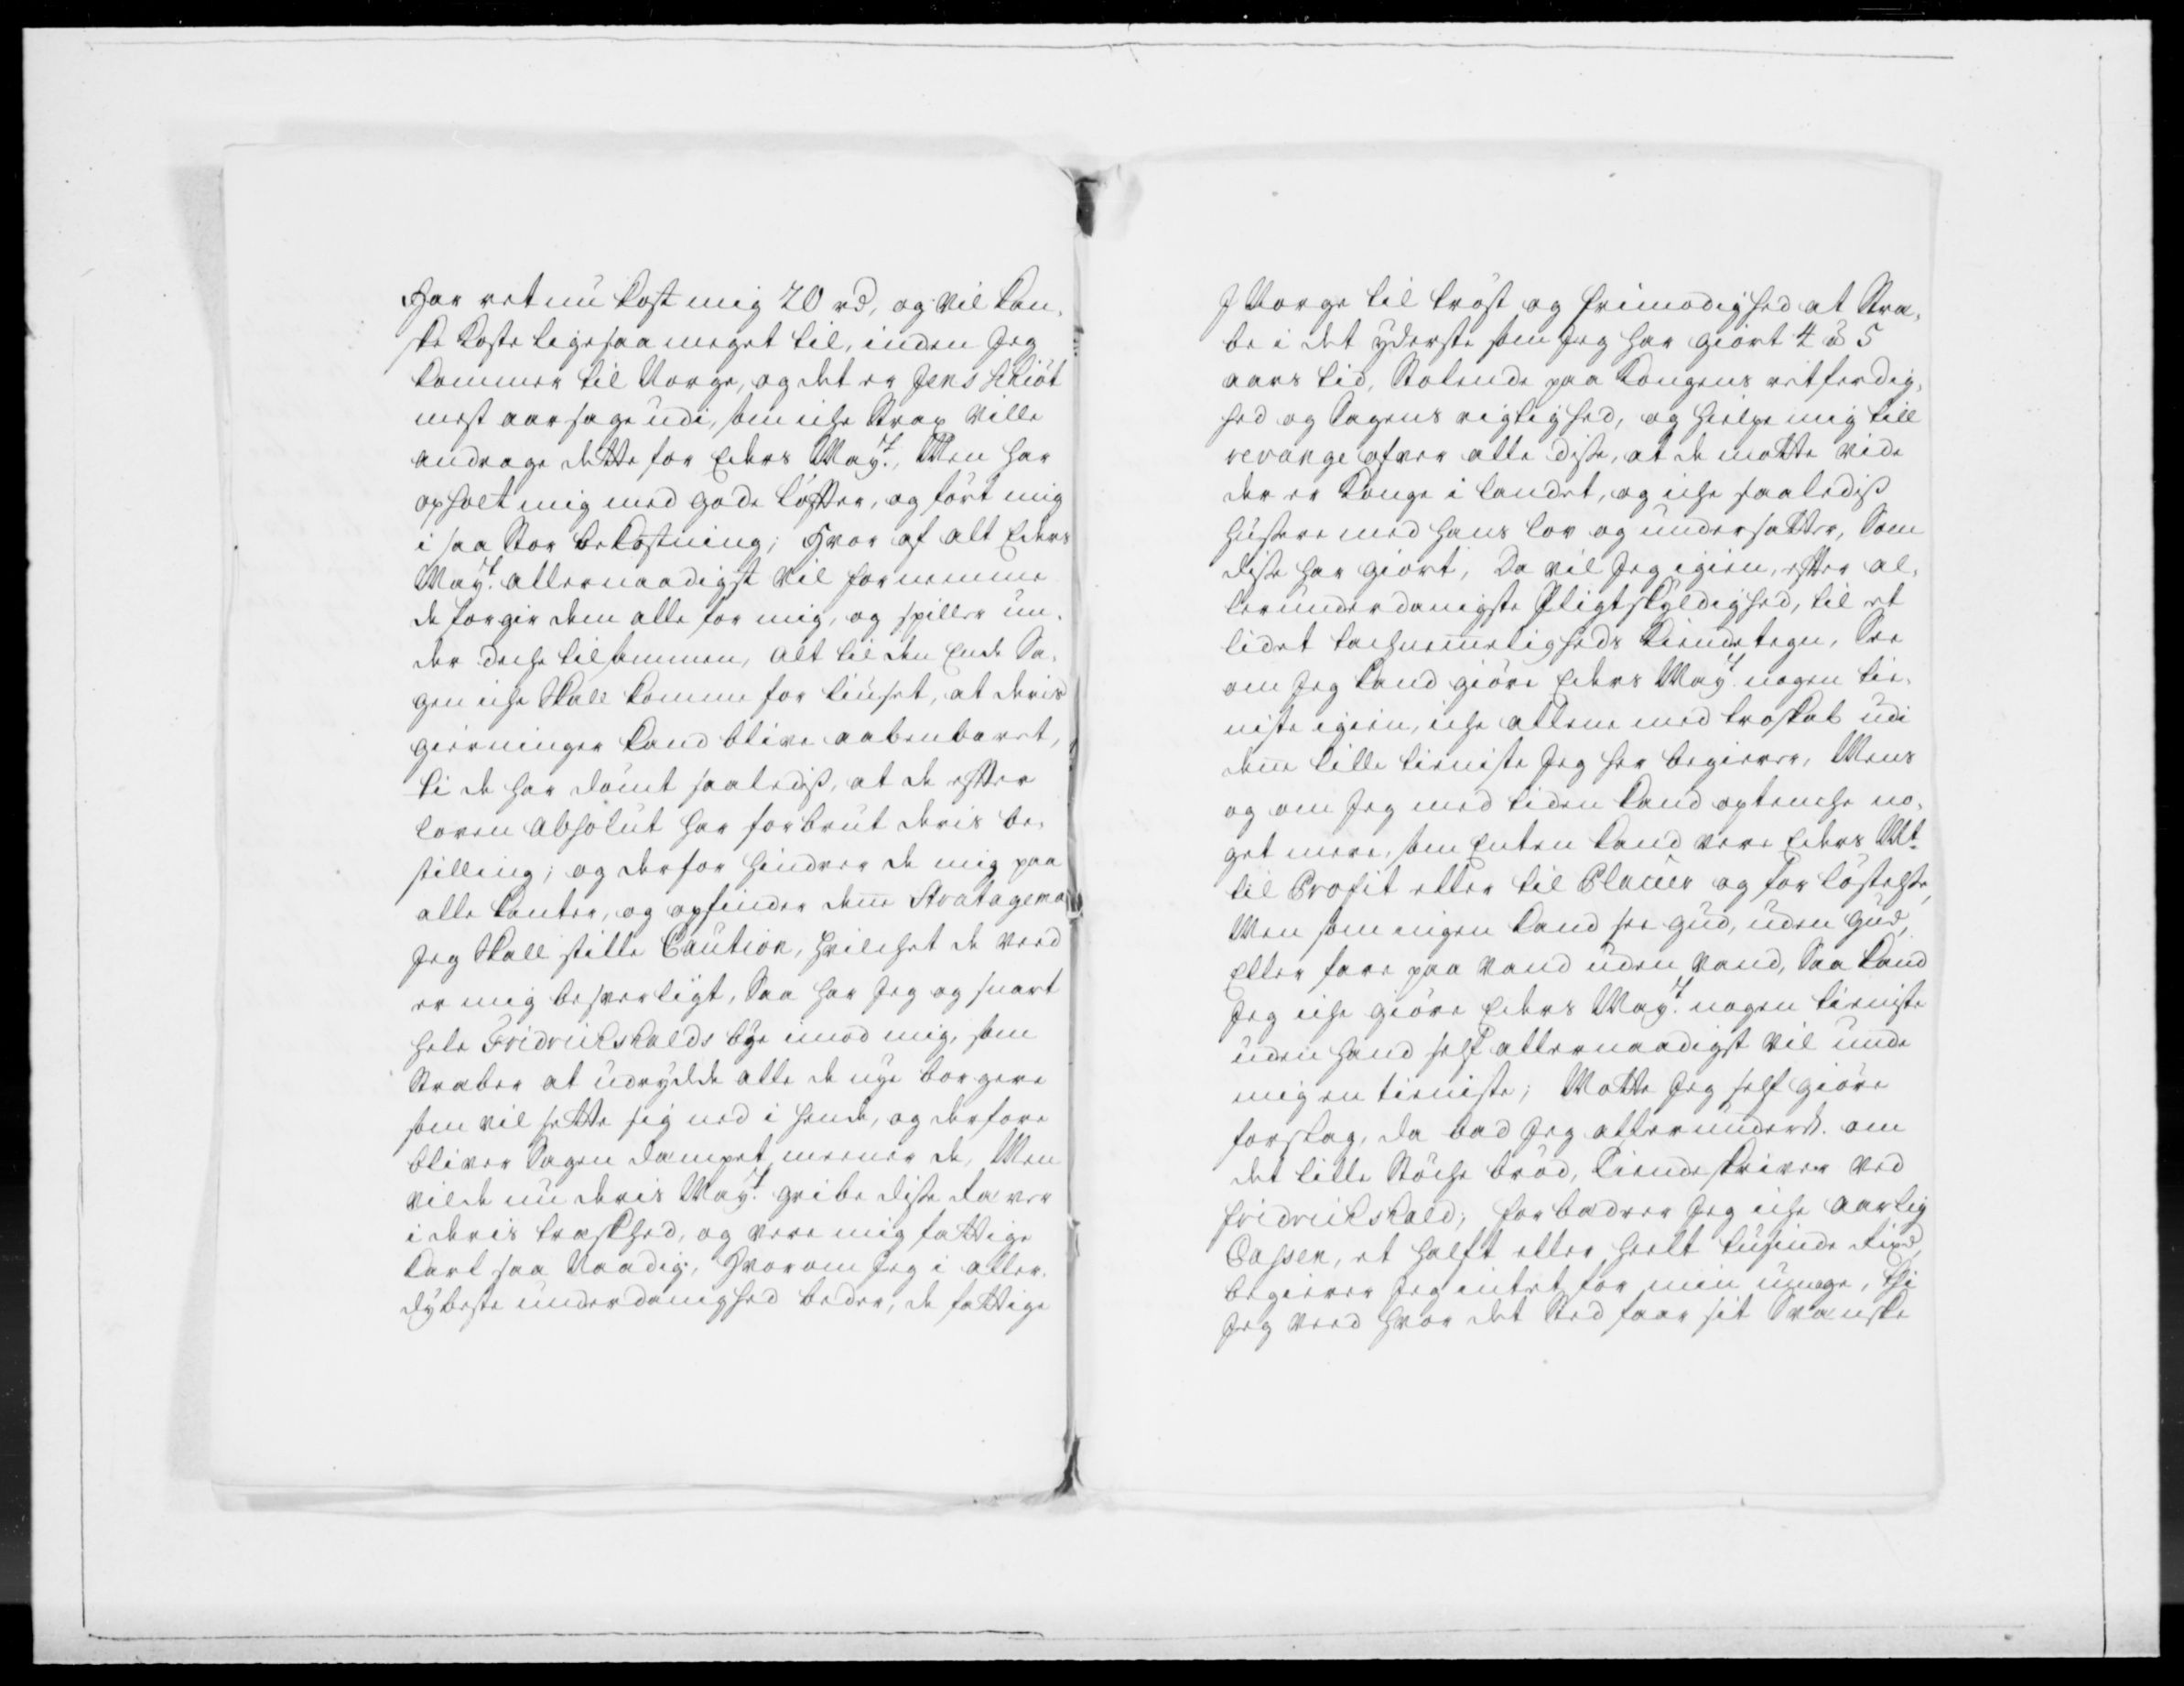 Har ret nu kost mig 20 rd, og vil kan,
ske koste ligesaa meget til, inden Jeg
kommer til Norge, og det er Jens Schiöt
mest aarsage udi, som iche strax ville
andrage dette for Eders May:t, Men har
opholt mig med gode löfter, og fört mig
i saa stor bekostning; Hvor af alt Eders
May:t allernaadigst vil fornemme
de forgir dem alle for mig, og spiller un,
der deche tilsammen, alt til den Ende Sa,
gen iche skall komme for liuset, at deris
gierninger kand blive aabenbaret,
ti de har dömt saaledis, at de efter
loven absolut har forbrut deris be,
stilling; og derfor hindrer de mig paa
alle kanter, og opfinder denne Stratagema
Jeg skall stille Caution, hvilchet de veed
er mig besverligt, Saa har Jeg og snart
hele Fridrichshalds bye imod mig, som
straber at udrydde alle de nye borgere
som vil sette sig ned i hende, og derfore
bliver Sagen dempet meener de, Men
vilde nu deris May:t gribe disse Ræver
i deris træskhed, og vere mig fattige
karl saa Naadig, Hvorom Jeg i aller,
dybeste underdanighed beder, de fattige
J Norge til tröst og frimodighed at stræ,
be i det yderste som Jeg har giört 4 à 5
aars tid, Stolende paa kongens retferdig,
hed og Sagens rigtighed, og hielpe mig till
revange ofver alle disse, at de motte vide
der er konge i landet, og iche saaledis
husere med hans lov og undersatter, Som
disse har giört, Da vil Jeg igien, efter al,
lerunderdanigste Pligtskyldighed, til et
lidet tachnemmeligheds kiendetegn, See
om Jeg kand giöre Eders May:t nogen tie,
niste igien, iche allene med troskab udi
denne lille tieniste Jeg her begierer, Mens
og om Jeg med tiden kand optenche no,
get mere, som Enten kand vere Eders Mt
til Profit eller til Plaiser og forlöstelse,
Men som ingen kand see Gud, uden Gud,
Eller fare paa vand uden vand, Saa kand
Jeg iche giöre Eders May:t nogen tieniste
uden hand self allernaadigst vil unde
mig en tieniste; Motte Jeg self giöre
forslag, da bad Jeg allerunderd. om
det lille Stöche bröd, Tiendeskriver ved
Fridrichshald; forbedrer Jeg iche aarlig
Cassen, et halft eller heelt tusinde Rixd,
begierer Jeg intet for min umage, thi
Jeg veed hvor det Sted faar sit Svenske